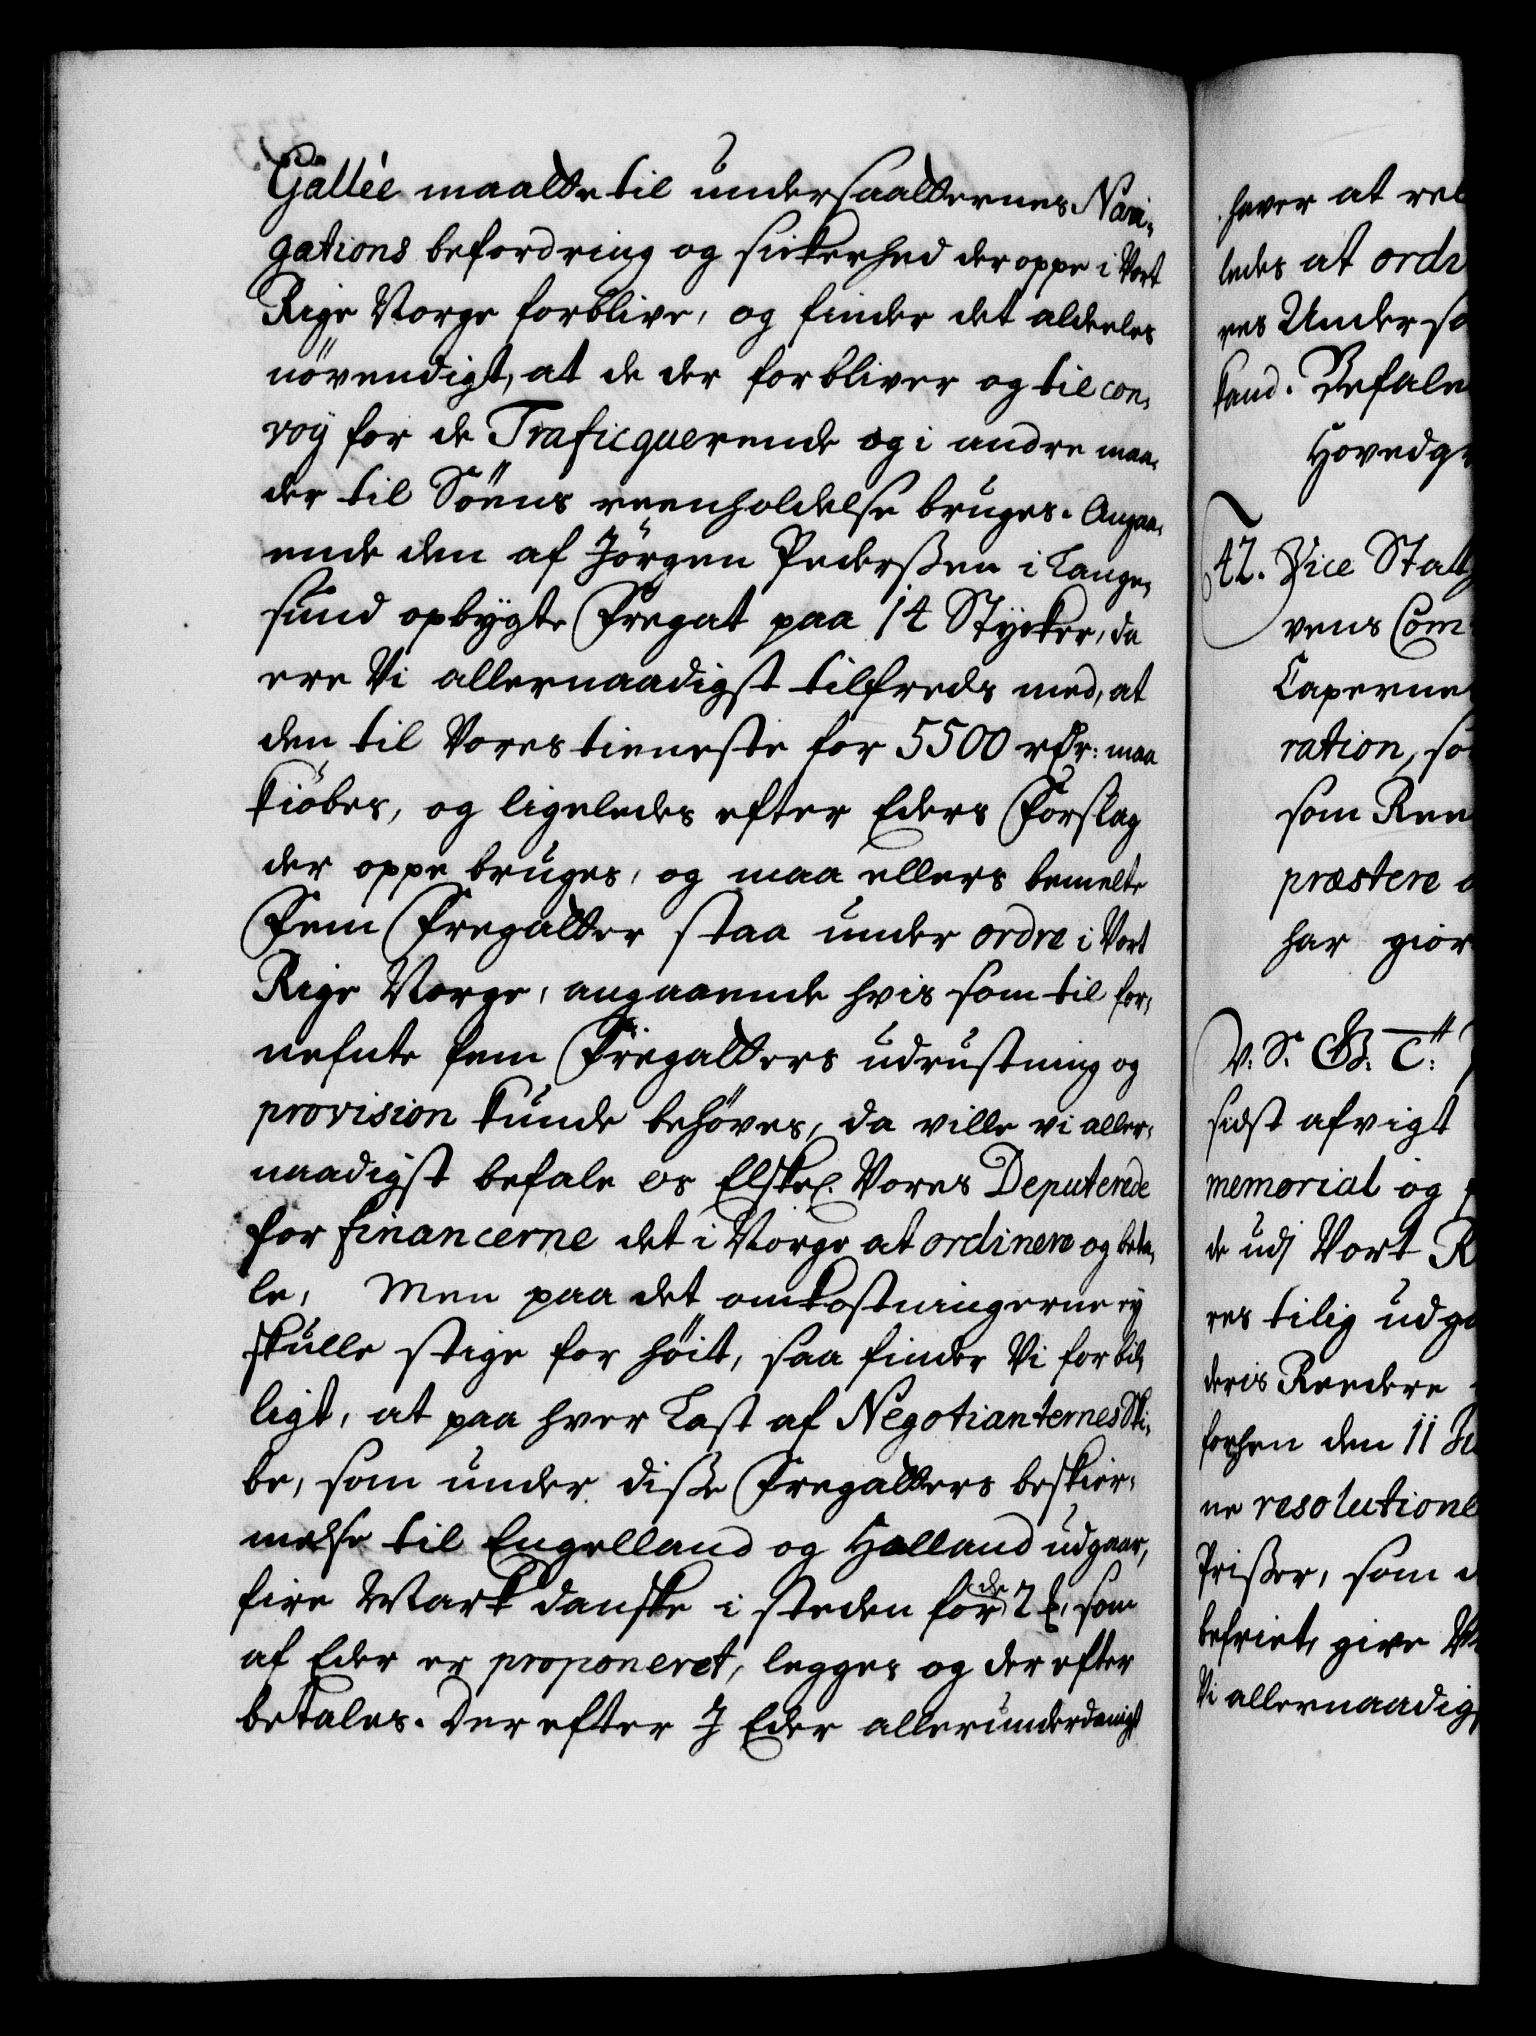 Gallée maatte til undersaatternes Navi-
gations befordring og sickerhed der oppe i Vort
Rige Norge forblive, og finder det aldeeles
növendigt, at de der forbliver og til con-
voy for de Traficquerende og i andre maa-
der til Söens reenholdelse bruges. Angaa-
ende den af Jörgen Pederssen i Lange-
sund opbygte Fregat paa 14 Stycker, da
ere Vi allernaadigst tilfreds med, at
den til Vores tieneste for 5500 rdr: maa
kiöbes, og ligeledes efter Eders Forslag
der oppe bruges, og maa ellers bemelte
Fem Fregatter staa under ordre i Vort
Rige Norge, angaaende hvis som til for-
nefnte fem Fregatters udrustning og
provision kunde behöves, da ville vi aller-
naadigst befale os Elskel. Vores Deputerede
for financerne det i Norge at ordinere og beta-
le, Men paa det omkostningerne ey
skulle stige for höit, saa finder Vi for bil-
ligt, at paa hver Last af Negotianternes Ski-
be, som under disse Fregatters beskier-
melse til Engelland og Holland udgaar,
fire Mark danske i steden for de 2 , som
af Eder er proponeret, legges og der efter
betales. Der efter I Eder allerunderdanigst
haver at
ledes at ord
res Underso
kand. Befale
Hovedg
42. Vice Statt
vens Com
Caperne
ration, so
som Ree
præstere
har giör
V. S. G. T.
sidst afvigt
memorial og
de udj Vort R
res tilig udg
deris Reedere
forhen den 11 Ju
ne resolutione
Prisser, som
befriet, give
Vi allernaadig